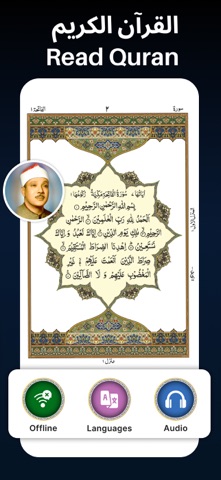 القرآن الكريم
Read Quran
سورة ٢ الفاتحة ١
بِسْمِ اللهِ الرَّحْمٰنِ الرَّحِيْمِ
اَلْحَمْدُ لِلّٰهِ رَبِّ الْعٰلَمِيْنَ ۙ الرَّحْمٰنِ
الرَّحِيْمِ ۙ مٰلِكِ يَوْمِ الدِّيْنِ ۗ اِيَّاكَ نَعْبُدُ وَ اِيَّاكَ
نَسْتَعِيْنُ ۗ اِهْدِنَا الصِّرَاطَ الْمُسْتَقِيْمَ ۙ
صِرَاطَ الَّذِيْنَ اَنْعَمْتَ عَلَيْهِمْ ۙ غَيْرِ
الْمَغْضُوْبِ عَلَيْهِمْ وَ لَا الضَّآلِّيْنَ
Offline
Languages
Audio